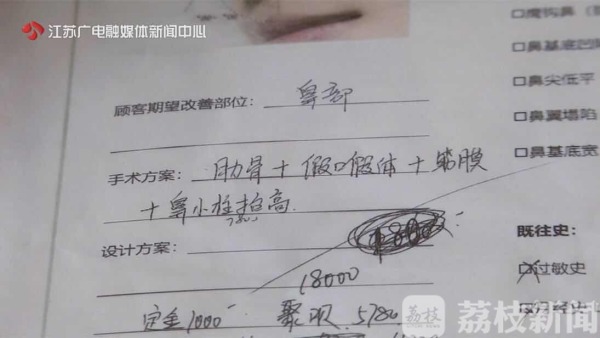 江苏广电融媒体新闻中心
□魔钩鼻（
□鼻基底凹陷
顾客期望改善部位：鼻部
□鼻尖低平
□鼻翼塌陷
手术方案：肋骨+假体+筋膜
□鼻基底宽
+鼻小柱抬高
7800
设计方案：
既往史：
18000
□过敏史
定金1000
5780
荔枝
荔枝新闻